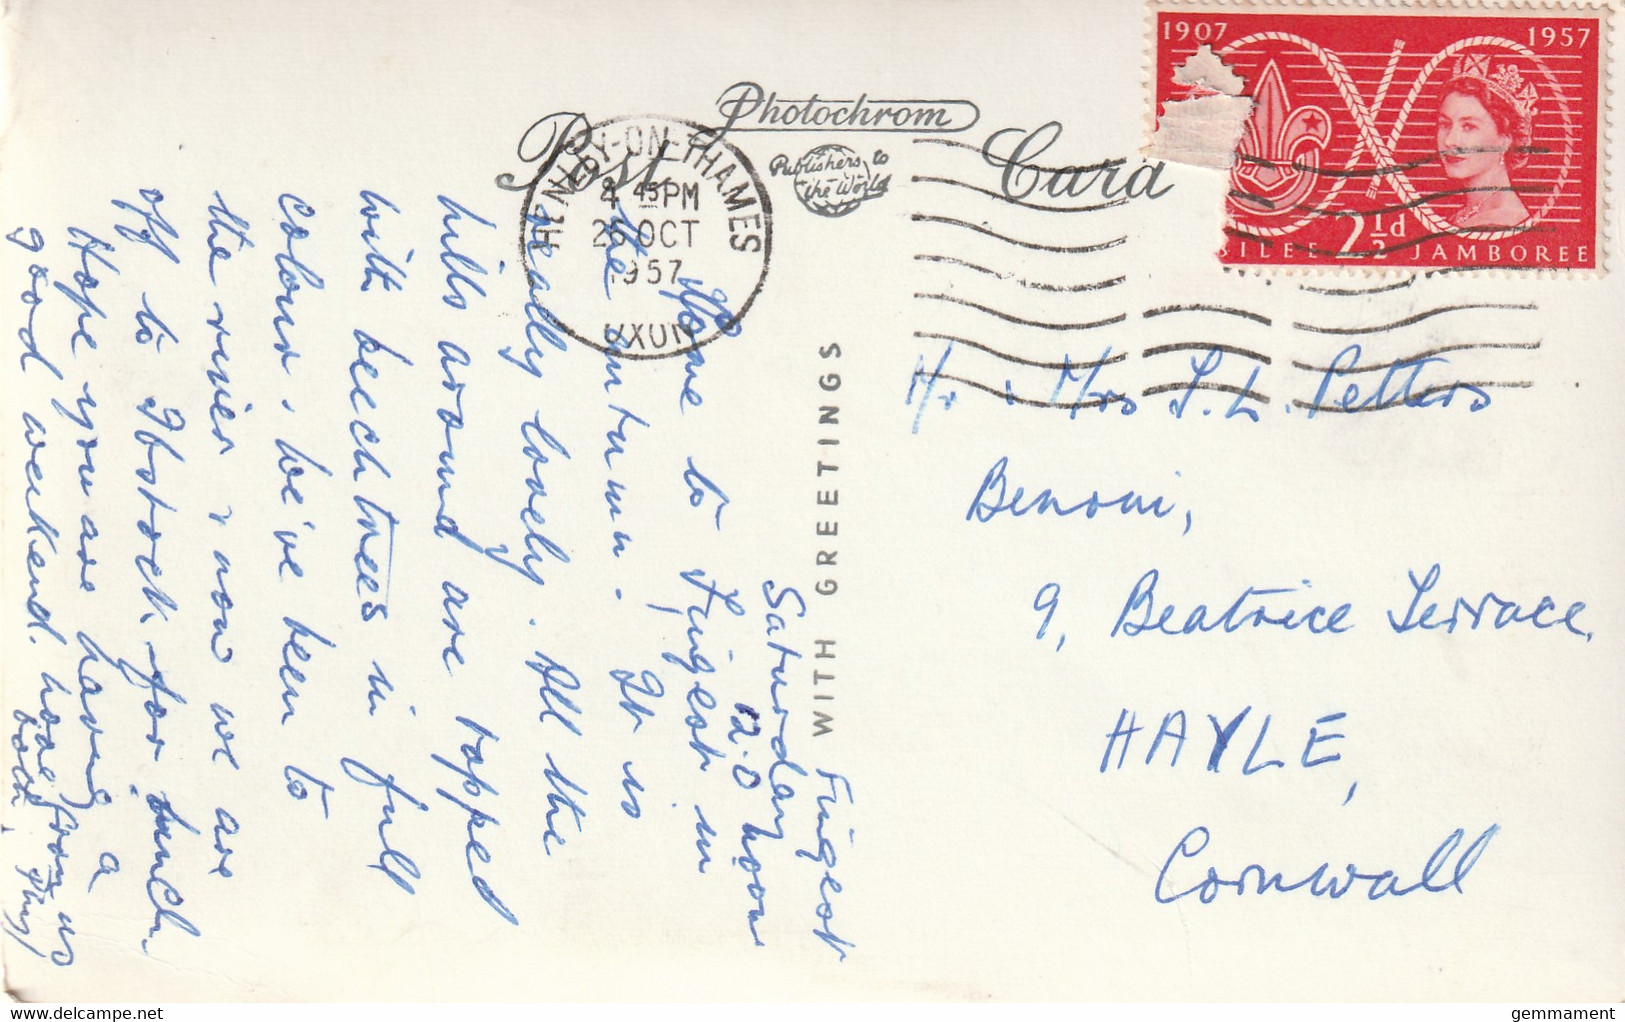 Photochrom
Post Card
Publishers to
the World
1907 1957
2½d
JAMBOREE
HENLEY-ON-THAMES
4 45 PM
26 OCT
1957
OXON
WITH GREETINGS
Fingest
Saturday
12.0 noon
Home to Fingest in
the Autumn. It is
really lovely. All the
hills around are topped
with beech trees in full
colour. We've been to
the river & now we are
off to Ibstock for lunch.
Hope you are having a
good weekend. Love from us
both.
Mr & Mrs S. L. Petters
Benoni,
9, Beatrice Terrace,
HAYLE,
Cornwall
gemmament